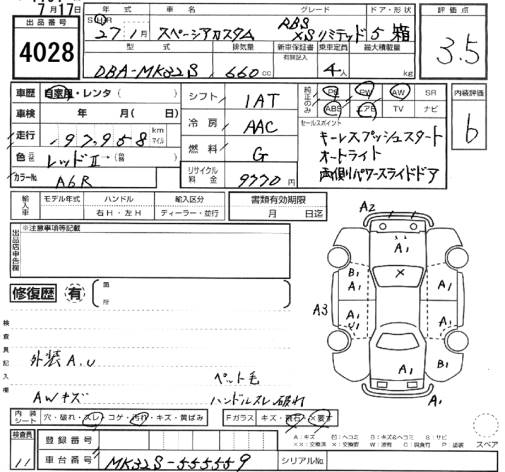 7月17日
出品番号
4028
年式 車名 グレード ドア・形状
27 1月 スペーシアカスタム RBS XSリミテッド 5 箱
型式 排気量 新車保証書 乗車定員 最大積載量
有 記録簿
DBA-MK32S 660 cc 4人 kg
評価点
3.5
車歴 自家用・レンタ( )
車検 年 月( 日)
走行 97,958 km マイル
色 元色 レッドⅡ (替)
カラーNo A6R
シフト IAT
冷房 AAC
燃料 G
リサイクル料金 9770円
純正のみ PS PW AW SR
ABS エアB TV ナビ
セールスポイント
キーレスプッシュスタート
オートライト
両側パワースライドドア
内装評価
b
輸入車 モデル年式 ハンドル 輸入区分
右H・左H ディーラー・並行
書類有効期限
月 日迄
出品店申告欄
※注意事項等記載
修復歴 有 箇所
検査員記入欄
外装A,U
ペット毛
AWキズ ハンドルスレ破れ
A2
A1
B1 × A1
A3
A1 A1
A1 B1
A1
内装シート 穴・破れ・スレ・コゲ・汚れ・キズ・黄ばみ
Fガラス キズ・飛石・×要す
A:キズ U:ヘコミ B:キズ&ヘコミ S:サビ
××:交換済 ×:要交換 W:波有 C:腐食 P:塗装 スペア
検査員 11
登録番号
車台番号 MK32S-555559 シリアルNo